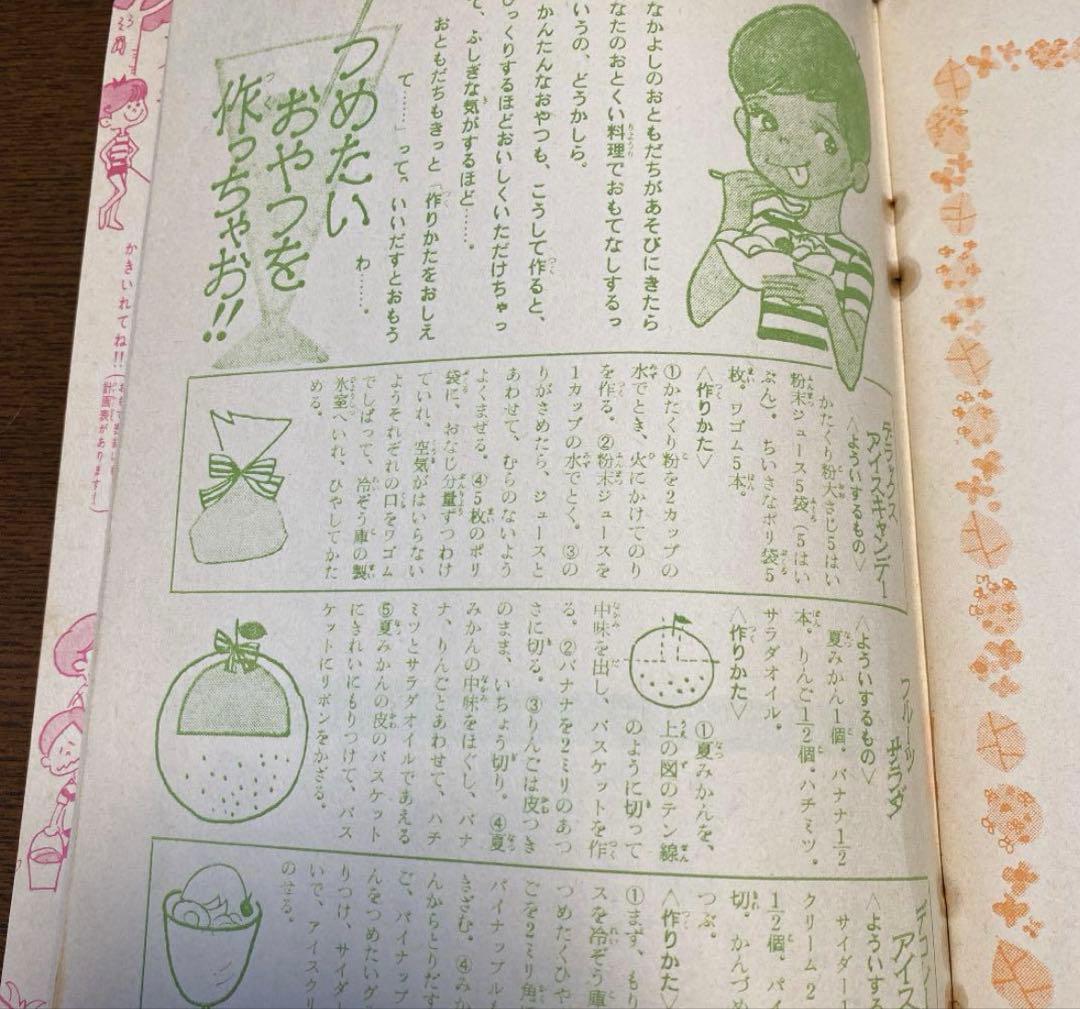 なかよしのおともだちがあそびにきたら
なたのおとくい料理でおもてなしするっ
いうの、どうかしら。
かんたんなおやつも、こうして作ると、
びっくりするほどおいしくいただけちゃっ
て、ふしぎな気がするほど……。
おともだちもきっと「作りかたをおしえ
て……」って、いいだすとおもう
わ……。
つめたい
おやつを
作っちゃお!!
デラックス
アイスキャンデー
<よういするもの>
かたくり粉大さじ5はい
粉末ジュース5袋(5はい
ぶん)。ちいさなポリ袋5
枚。ワゴム5本。
<作りかた>
①かたくり粉を2カップの
水でとき、火にかけてのり
を作る。②粉末ジュースを
1カップの水でとく。③の
りがさめたら、ジュースと
あわせて、むらのないよう
よくまぜる。④5枚のポリ
袋に、おなじ分量ずつわけ
ていれ、空気がはいらない
ようそれぞれの口をワゴム
でしばって、冷ぞう庫の製
氷室へいれ、ひやしてかた
める。
フルーツ
サラダ
<よういするもの>
夏みかん1個。バナナ1/2
本。りんご1/2個。ハチミツ。
サラダオイル。
<作りかた>
①夏みかんを、
上の図のテン線
のように切って
中味を出し、バスケットを作
る。②バナナを2ミリのあつ
さに切る。③りんごは皮つき
のまま、いちょう切り。④夏
みかんの中味をほぐし、バナ
ナ、りんごとあわせて、ハチ
ミツとサラダオイルであえる
⑤夏みかんの皮のバスケット
にきれいにもりつけて、バス
ケットにリボンをかざる。
デコ
アイス
<よういする
サイダー1
クリーム2
1/2個。パイ
切。かんづめ
つぶ。
<作りかた>
①まず、もり
スを冷ぞう庫
つめたくひや
ごを2ミリ角に
パイナップルも
きざむ。④みか
んからとりだす
ご、パイナップ
んをつめたいグ
りつけ、サイダー
いで、アイスクリ
のせる。
かきいれてね!!
計画表があります!